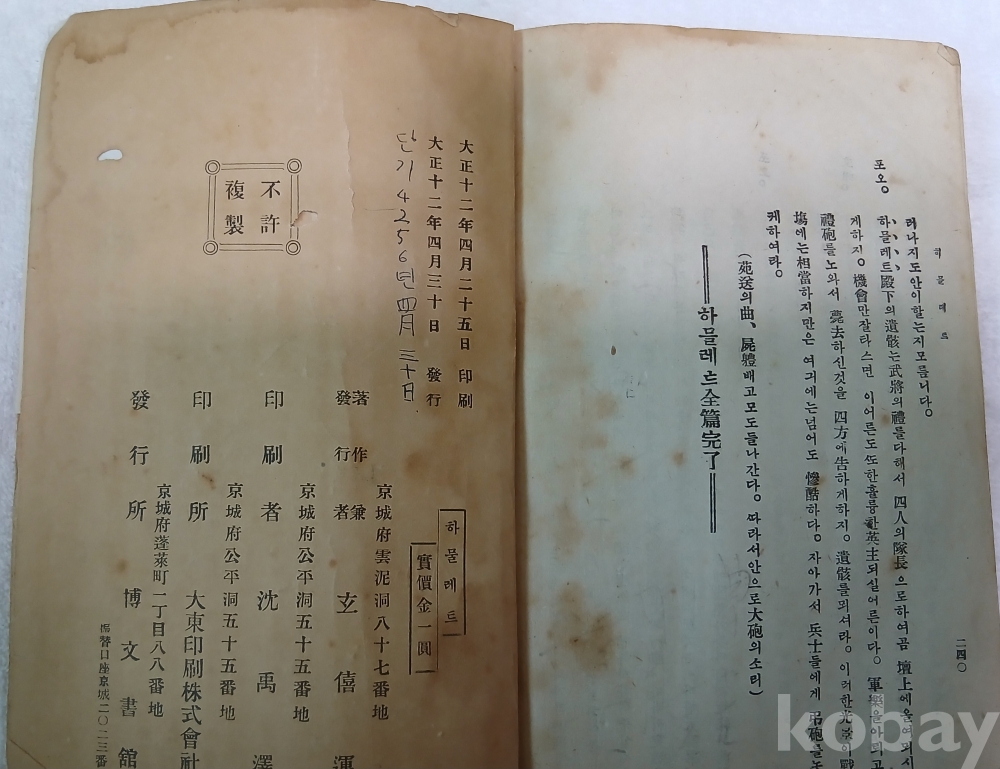 하믈레트
二四〇
러나지도안이할는지모릅니다。
포오。
하믈레트殿下의遺骸는武將의禮를다해서 四人의隊長으로하여곰 壇上에올여뫼시
게하지。機會만잘타스면 이어른도또한훌륭한英主되실어른이다。軍樂을아뢰고
禮砲를노와서 薨去하신것을 四方에告하게하지。遺骸를뫼셔라。이러한光景이戰
塲에는相當하지만은 여긔에는넘어도 慘酷하다。자아가서 兵士들에게 吊砲를노
케하여라。
(葬送의曲、屍體배고모도들나간다。따라서안으로大砲의소리)
하믈레트全篇完了
大正十二年四月二十五日 印刷
大正十二年四月三十日 發行
단기 4256년 四月 三十日.
不許
複製
하믈레트
實價金一圓
京城府雲泥洞八十七番地
著作兼
發行者 玄僖運
京城府公平洞五十五番地
印刷者 沈禹澤
京城府公平洞五十五番地
印刷所 大東印刷株式會社
京城府蓬萊町一丁目八八番地
發行所 博文書館
振替口座京城二〇二三番
kobay